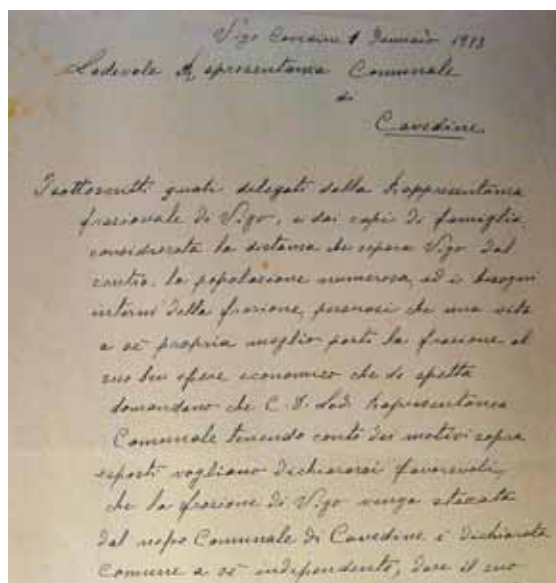 Vigo Cavedine 1 Gennaio 1913
Lodevole Rapresentanza Comunale
di
Cavedine
I sottoscritti quali delegati della Rappresentanza
frazionale di Vigo, e dai capi di famiglia,
considerata la distanza che separa Vigo dal
centro, la popolazione numerosa, ed i bisogni
interni della frazione, persuasi che una vita
a sè propria meglio porti la frazione al
suo ben essere economico che le spetta
domandano che C. S. Lod. Rapresentanza
Comunale tenendo conto dei motivi sopra
esposti vogliano dichiararsi favorevoli,
che la frazione di Vigo venga staccata
dal nesso Comunale di Cavedine e dichiarata
Comune a sè indipendente, dare il suo